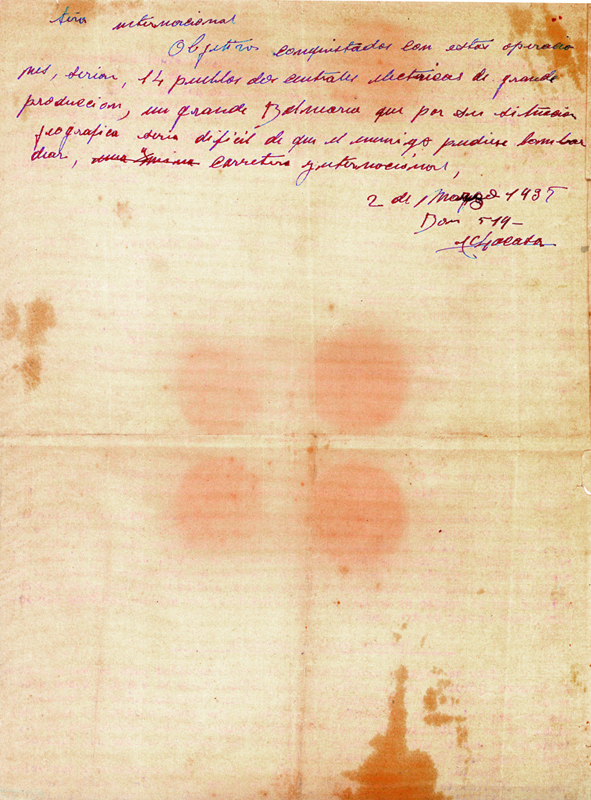 tera internacional
Objetivos conquistados con estas operacio
nes, serian, 14 pueblos dos centrales electricas de grande
producción, un grande Balneario que por su situación
geografica seria dificil de que el enemigo pudiese bombar
dear, una mina carretera y internacional,
2 de Marzo 1937
Dom 519-